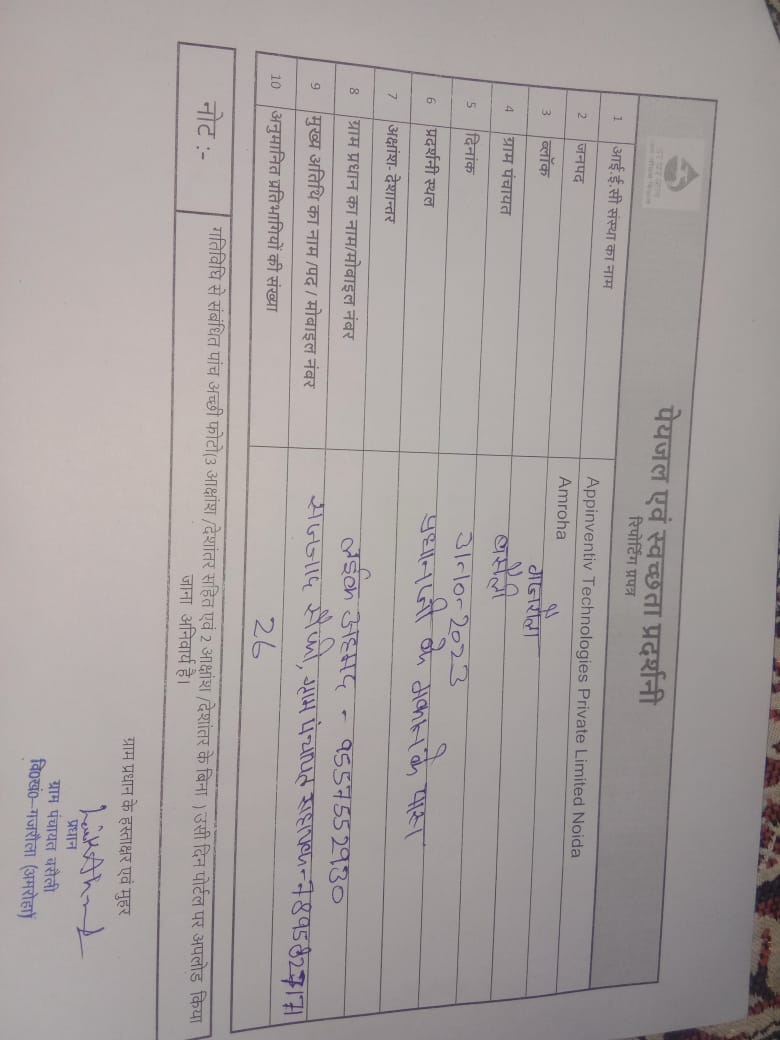 पेयजल एवं स्वच्छता प्रदर्शनी
रिपोर्टिंग प्रपत्र
1 आई.ई.सी संस्था का नाम Appinventiv Technologies Private Limited Noida
2 जनपद Amroha
3 ब्लॉक गजरौला
4 ग्राम पंचायत बसैली
5 दिनांक
6 प्रदर्शनी स्थल प्रधान जी के मकान के पास
7 अक्षांश- देशान्तर
8 ग्राम प्रधान का नाम/मोबाइल नंबर अहमद - 9557552930
9 मुख्य अतिथि का नाम /पद / मोबाइल नंबर सैफी, ग्राम पंचायत सहायक
10 अनुमानित प्रतिभागियों की संख्या 26
नोट :- गतिविधि से संबंधित पांच अच्छी फोटो(3 आक्षांश /देशांतर सहित एवं 2 आक्षांश /देशांतर के बिना ) उसी दिन पोर्टल पर अपलोड किया
जाना अनिवार्य है।
ग्राम प्रधान के हस्ताक्षर एवं मुहर
प्रधान
ग्राम पंचायत बसैली
वि0ख0-गजरौला (अमरोहा)